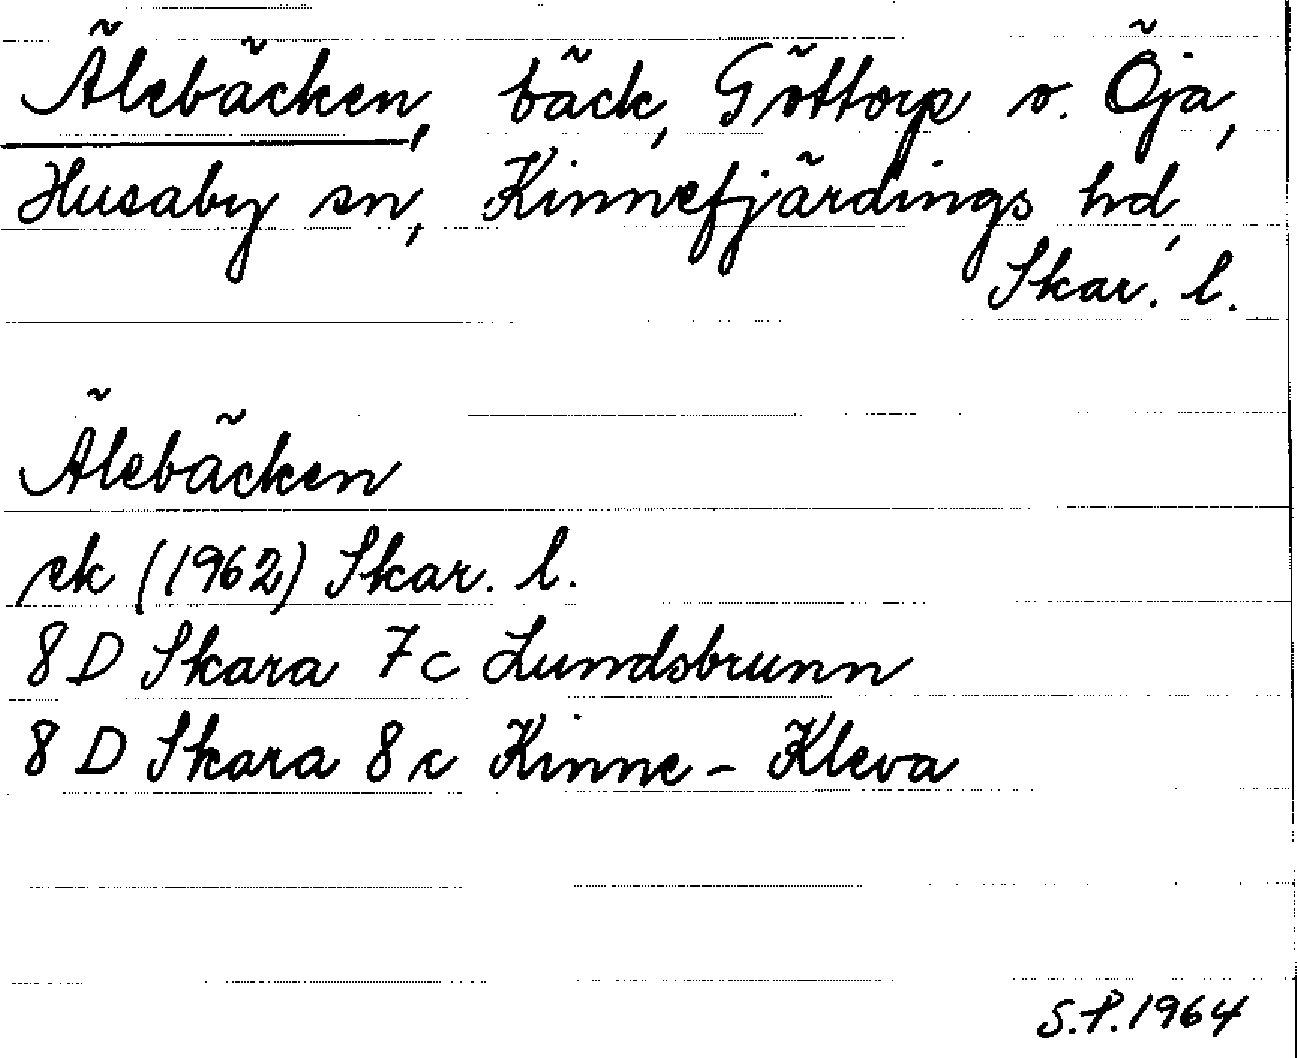 Älebäcken, bäck, Göttorp o. Öja,
Husaby sn, Kinnefjärdings hd,
Skar. l.
Älebäcken
ek (1962) Skar. l.
8 D Skara 7 c Lundsbrunn
8 D Skara 8 c Kinne - Kleva
S.P. 1964